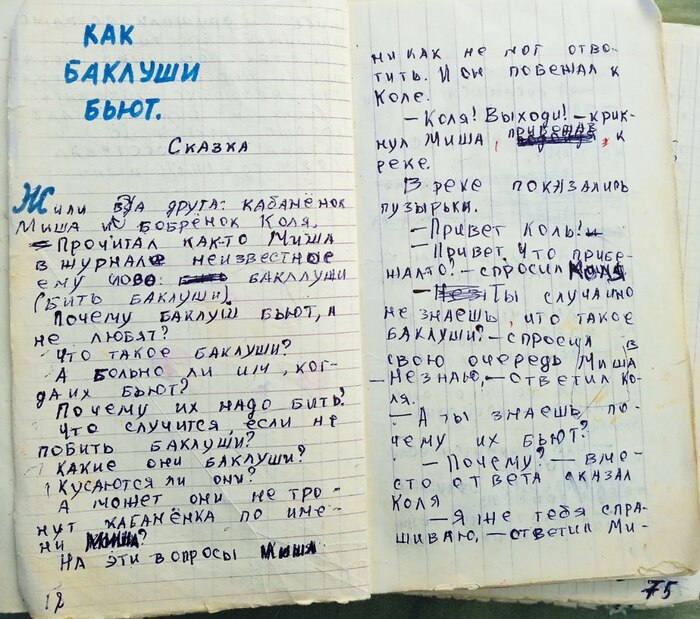 КАК
БАКЛУШИ
БЬЮТ.
СКАЗКА
Жили два друга: кабанёнок
Миша и бобрёнок Коля.
Прочитал как-то Миша
в журнале неизвестное
ему слово: баклуши
(бить баклуши).
Почему баклуш бьют, а
не любят?
Что такое баклуши?
А больно ли им, ког-
да их бьют?
Почему их надо бить?
Что случится, если не
побить баклуши?
Какие они баклуши?
Кусаются ли они?
А может они не тро-
нут кабанёнка по име-
ни Миша?
На эти вопросы Миша
12
никак не мог отве-
тить. И он побежал к
Коле.
– Коля! Выходи! – крик-
нул Миша, прибежав к
реке.
В реке показались
пузырьки.
– Привет Коль!
– Привет. Что прибе-
жал-то? – спросил Коля
– Ты случайно
не знаешь, что такое
баклуши? – спросил в
свою очередь Миша
– Не знаю, – ответил Ко-
ля.
– А ты знаешь по-
чему их бьют?
– Почему? – вме-
сто ответа сказал
Коля
– Я же тебя спра-
шиваю, – ответил Ми-
75